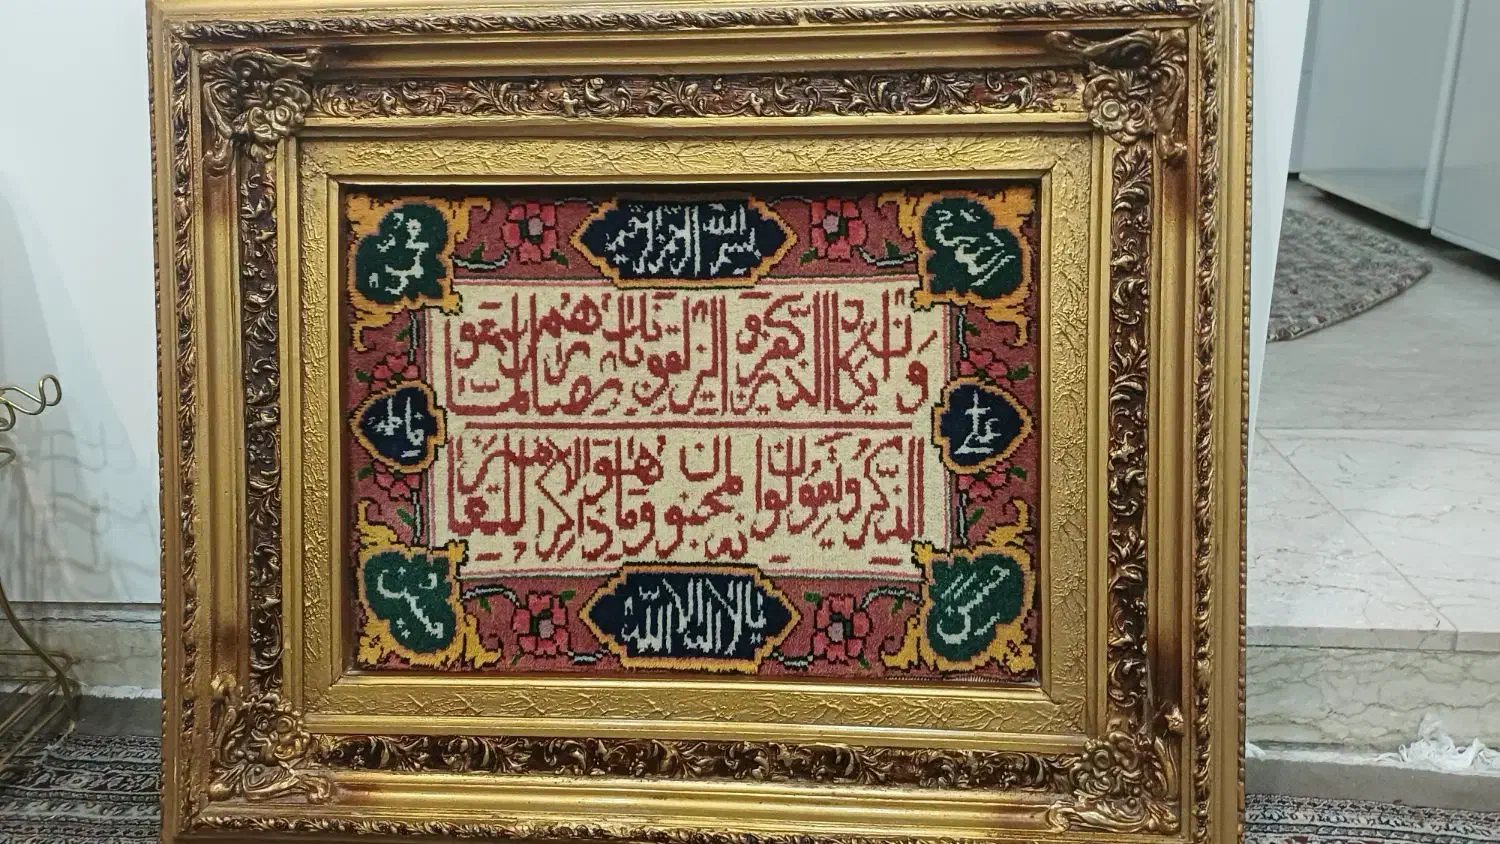 الله
بسم الله الرحمن الرحیم
محمد
وان یکاد الذین کفروا لیزلقونک بابصارهم لما سمعوا
علی
فاطمه
الذکر ویقولون انه لمجنون وما هو الا ذکر للعالمین
حسن
لا اله الا الله
حسین